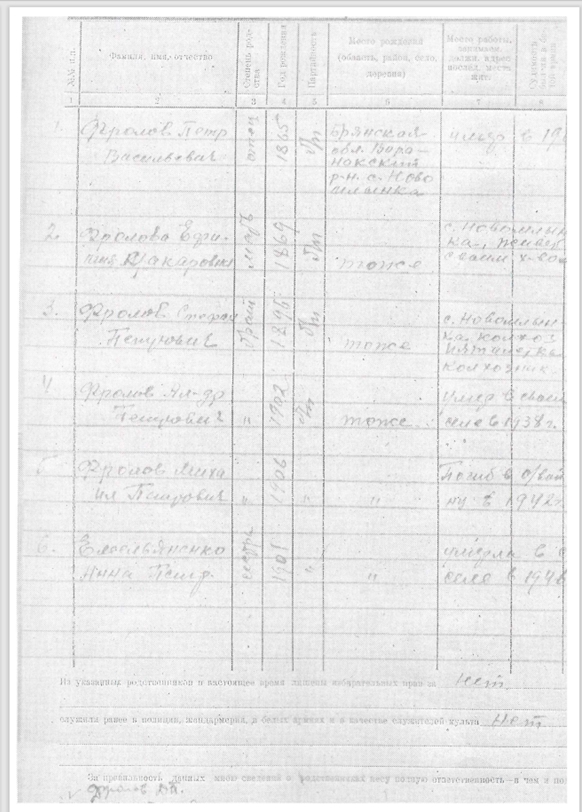 №№ п.п.
Фамилия, имя, отчество
Степень род-
ства
Год рождения
Партийность
Место рождения
(область, район, село,
деревня)
Место работы,
занимаем.
должн. адрес
послед. места
жит.
1 2 3 4 5 6 7 8
1. Фролов Петр
Васильевич
отец
1865
б/п
Брянская
обл.
р-н. с. Ново
млынка
умер в 19
2. Фролова
Макаровна
мать
1869
б/п
тоже
с. Новомлын
ка,
своим х-вом
3. Фролов
Петрович
брат
1895
б/п
тоже
с. Новомлын
ка колхоз
Пятилетка
колхозник
4 Фролов Ал-др
Петрович
"
1902
б/п
тоже
умер в своем
селе в 1938 г.
5 Фролов Миха
ил Петрович
"
1906
"
"
Погиб в
ну в 1942 г.
6. Емельяненко
Анна Петр.
сестра
1901
"
"
умерла в с
селе в 194
Из указанных родственников в настоящее время лишены избирательных прав за нет
служили ранее в полиции, жандармерии, в белых армиях и в качестве служителей культа Нет
За правильность данных мною сведений о родственниках несу полную ответственность— в чем и по
Фролов